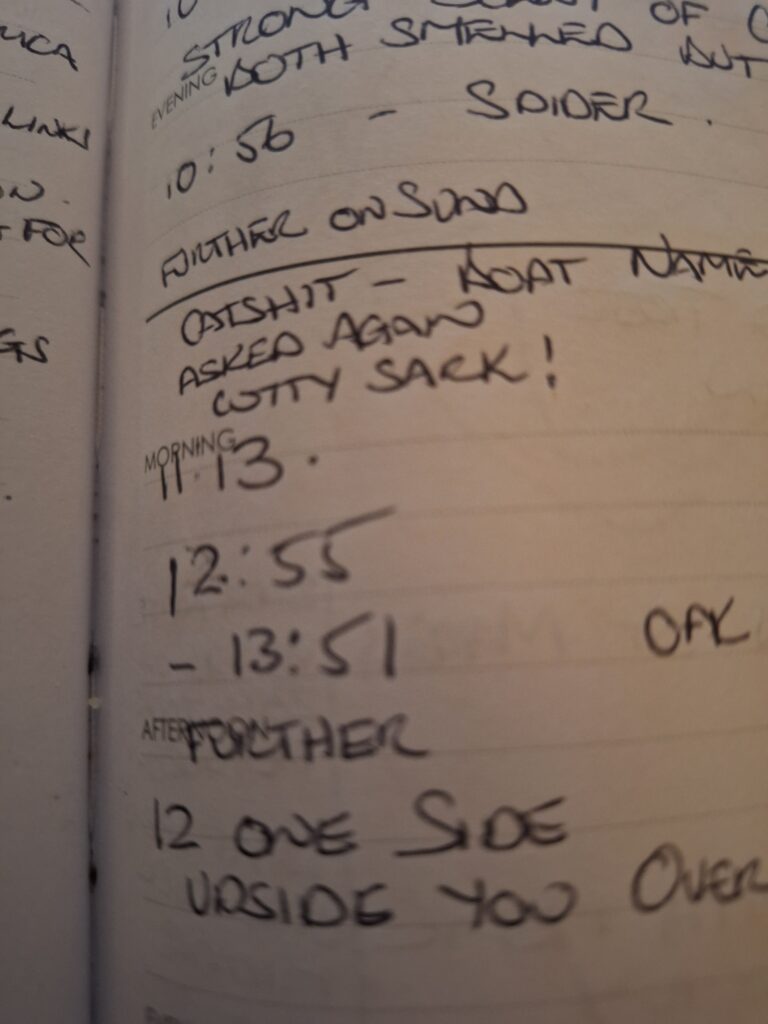 UCA
LINKS
ON.
FOR
GS
10
STRONG OF
BOTH SMELLED BUT
EVENING
10:56 - SPIDER.
FURTHER ON SUND
CATSHIT - BOAT NAME
ASKED AGAIN
CUTTY SARK!
MORNING
11.13.
12:55
- 13:51 OAK
AFTERNOON
FURTHER
12 ONE SIDE
UPSIDE YOU OVER